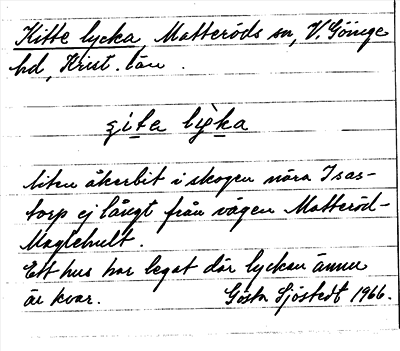 Kitte lycka Matteröds sn, V. Göinge
hd, Krist. län.
lyka
liten åkerbit i skogen nära Isas-
torp ej långt från vägen Matteröd-
Maglehult.
Ett hus har legat där lyckan ännu
är kvar. Gösta Sjöstedt 1966.